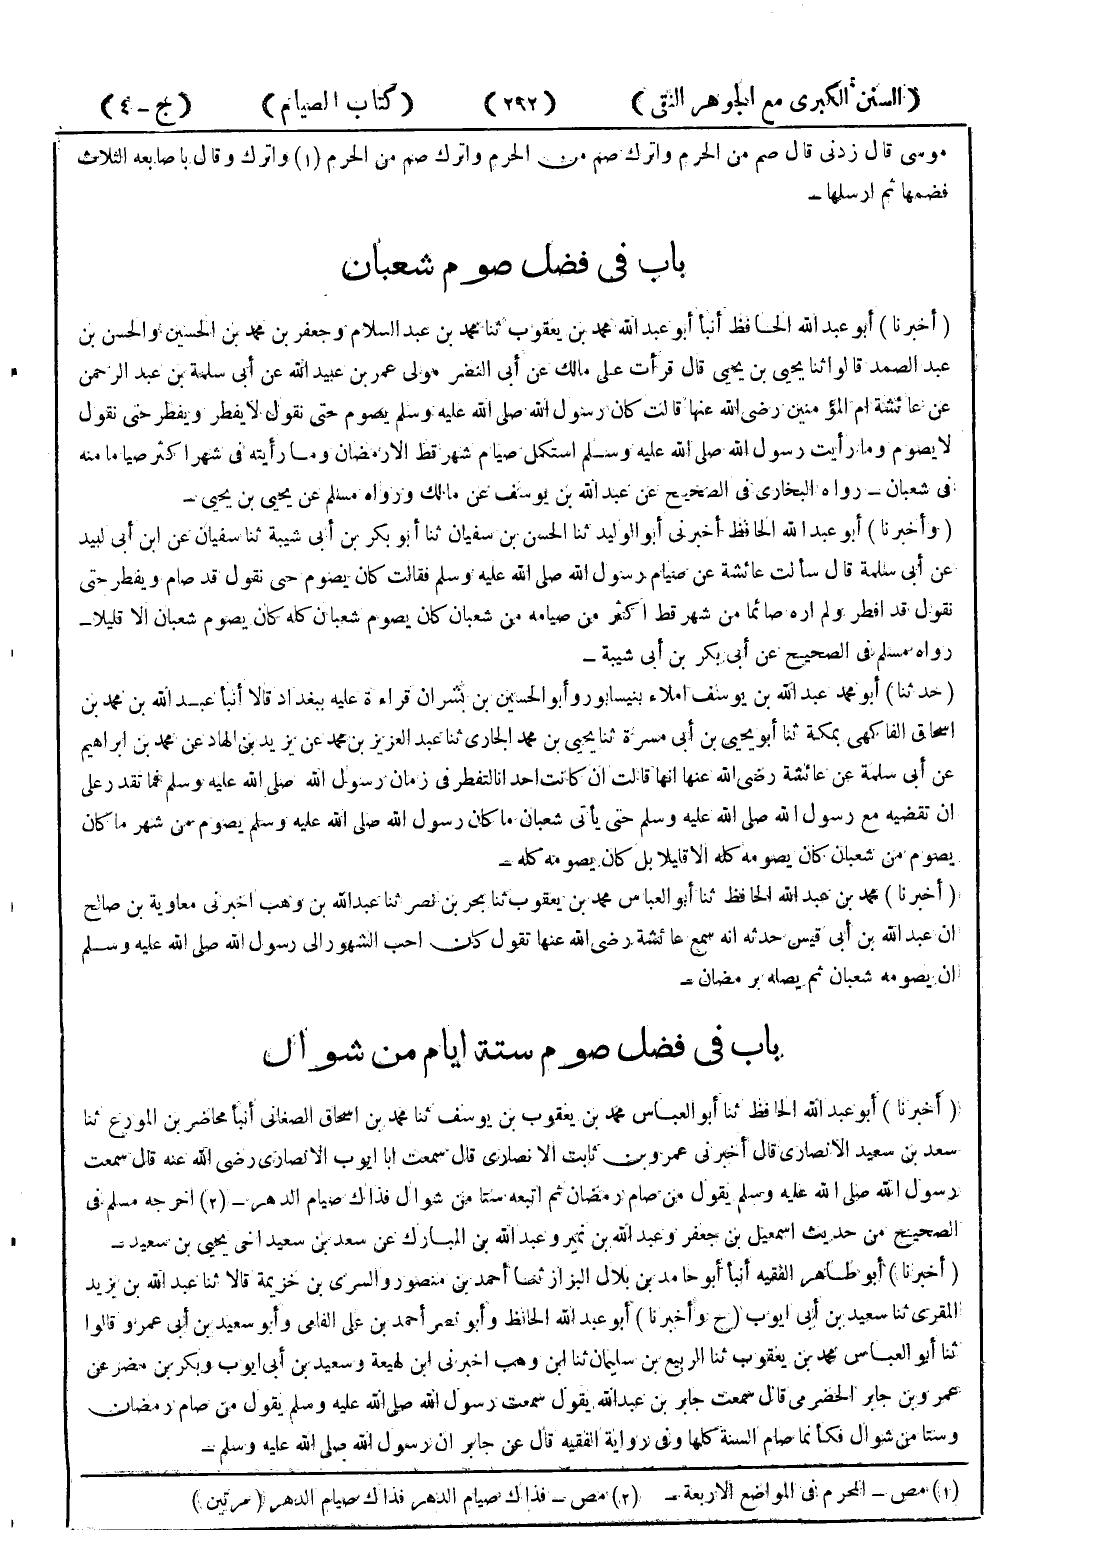 (السنن الكبرى مع الجوهر النقى) (٢٩٢) (كتاب الصيام) (ج-٤)
موسى قال زدنى قال صم من الحرم واترك صم من الحرم واترك صم من الحرم (١) واترك وقال باصابعه الثلاث
فضمها ثم ارسلها -
باب فى فضل صوم شعبان
(أخبرنا) أبو عبد الله الحافظ أنبأ أبو عبد الله محمد بن يعقوب ثنا محمد بن عبد السلام وجعفر بن محمد بن الحسين والحسن بن
عبد الصمد قالوا ثنا يحيى بن يحيى قال قرأت على مالك عن أبى النضر مولى عمر بن عبيد الله عن أبى سلمة بن عبد الرحمن
عن عائشة ام المؤمنين رضى الله عنها قالت كان رسول الله صلى الله عليه وسلم يصوم حتى نقول لايفطر ويفطر حتى نقول
لايصوم وما رأيت رسول الله صلى الله عليه وسلم استكمل صيام شهر قط الا رمضان وما رأيته فى شهر اكثر صياما منه
فى شعبان - رواه البخارى فى الصحيح عن عبد الله بن يوسف عن مالك ورواه مسلم عن يحيى بن يحيى -
(وأخبرنا) أبو عبد الله الحافظ أخبرنى أبو الوليد ثنا الحسن بن سفيان ثنا أبو بكر بن أبى شيبة ثنا سفيان عن ابن أبى لبيد
عن أبى سلمة قال سألت عائشة عن صيام رسول الله صلى الله عليه وسلم فقالت كان يصوم حتى نقول قد صام ويفطر حتى
نقول قد افطر ولم اره صائما من شهر قط اكثر من صيامه من شعبان كان يصوم شعبان كله كان يصوم شعبان الا قليلا -
رواه مسلم فى الصحيح عن أبى بكر بن أبى شيبة -
(حدثنا) أبو محمد عبد الله بن يوسف املاء بنيسابور وأبو الحسين بن بشران قراءة عليه ببغداد قالا أنبأ عبد الله بن محمد بن
اسحاق الفاكهى بمكة ثنا أبو يحيى بن أبى مسرة ثنا يحيى بن محمد الجارى ثنا عبد العزيز بن محمد عن يزيد بن الهاد عن محمد بن ابراهيم
عن أبى سلمة عن عائشة رضى الله عنها انها قالت ان كانت احدانا لتفطر فى زمان رسول الله صلى الله عليه وسلم فما تقدر على
ان تقضيه مع رسول الله صلى الله عليه وسلم حتى يأتى شعبان ما كان رسول الله صلى الله عليه وسلم يصوم من شهر ما كان
يصوم من شعبان كان يصومه كله الا قليلا بل كان يصومه كله -
(أخبرنا) محمد بن عبد الله الحافظ ثنا أبو العباس محمد بن يعقوب ثنا بحر بن نصر ثنا عبد الله بن وهب اخبرنى معاوية بن صالح
ان عبد الله بن أبى قيس حدثه انه سمع عائشة رضى الله عنها تقول كان احب الشهور الى رسول الله صلى الله عليه وسلم
ان يصومه شعبان ثم يصله برمضان -
باب فى فضل صوم ستة ايام من شوال
(أخبرنا) أبو عبد الله الحافظ ثنا أبو العباس محمد بن يعقوب بن يوسف ثنا محمد بن اسحاق الصغانى أنبأ محاضر بن المورع ثنا
سعد بن سعيد الانصارى قال أخبرنى عمرو بن ثابت الانصارى قال سمعت ابا ايوب الانصارى رضى الله عنه قال سمعت
رسول الله صلى الله عليه وسلم يقول من صام رمضان ثم اتبعه ستا من شوال فذاك صيام الدهر - (٢) اخرجه مسلم فى
الصحيح من حديث اسمعيل بن جعفر وعبد الله بن نمير وعبد الله بن المبارك عن سعد بن سعيد اخى يحيى بن سعيد -
(أخبرنا) أبو طاهر الفقيه أنبأ أبو حامد بن بلال البزاز ثنا أحمد بن منصور والسرى بن خزيمة قالا ثنا عبد الله بن يزيد
المقرى ثنا سعيد بن أبى ايوب (ح وأخبرنا) أبو عبد الله الحافظ وأبو نصر أحمد بن على الفامى وأبو سعيد بن أبى عمرو قالوا
ثنا أبو العباس محمد بن يعقوب ثنا الربيع بن سليمان ثنا ابن وهب اخبرنى ابن لهيعة وسعيد بن أبى ايوب وبكر بن مضر عن
عمرو بن جابر الحضرمى قال سمعت جابر بن عبد الله يقول سمعت رسول الله صلى الله عليه وسلم يقول من صام رمضان
وستا من شوال فكأنما صام السنة كلها وفى رواية الفقيه قال عن جابر ان رسول الله صلى الله عليه وسلم -
(١) مص - المحرم فى المواضع الاربعة - (٢) مص - فذاك صيام الدهر فذاك صيام الدهر (مرتين)